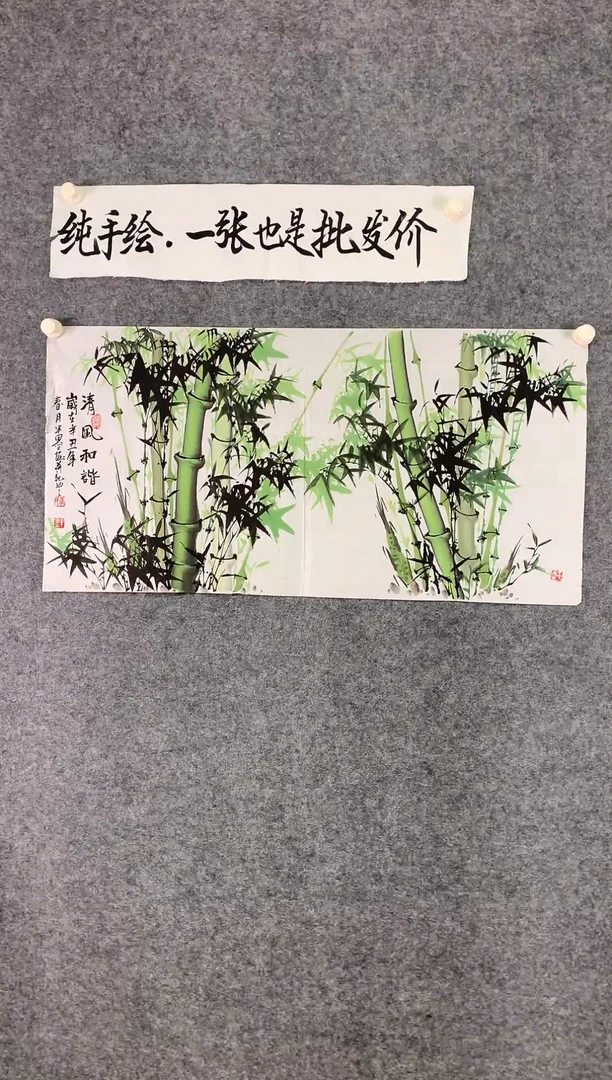 纯手绘.一张也是批发价
清风和谐
歲在辛丑年
春月